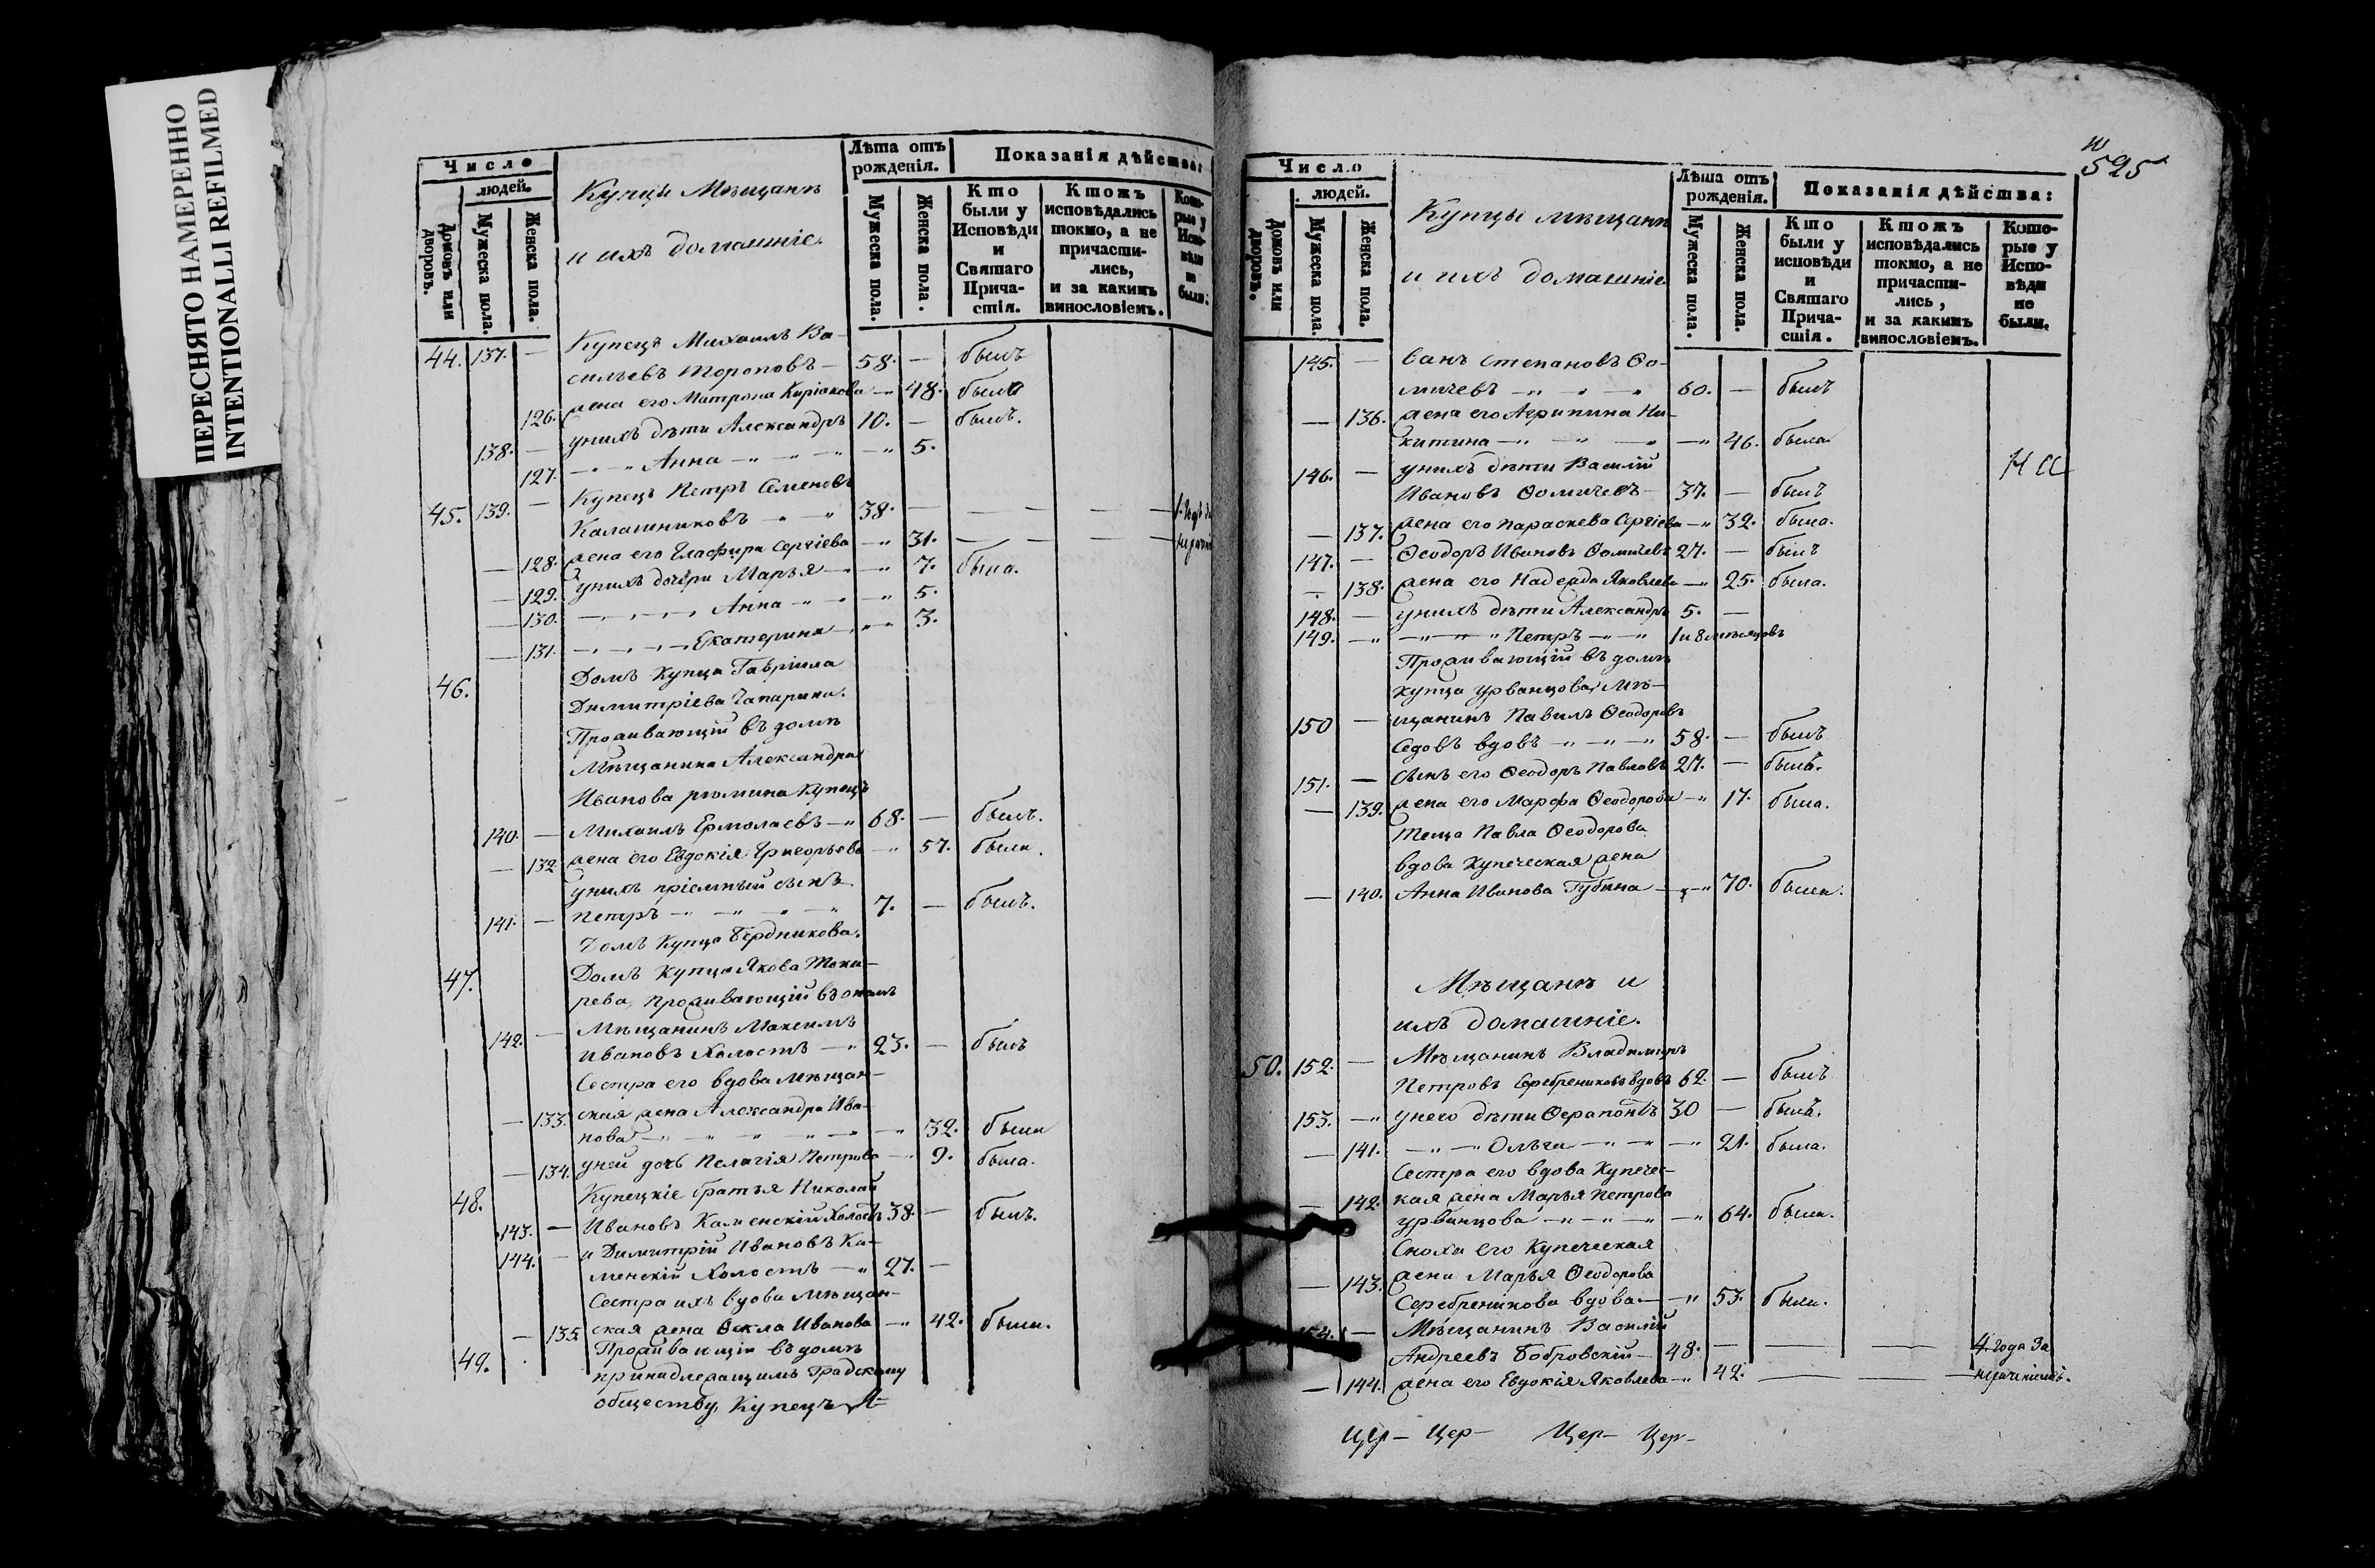 ПЕРЕСНЯТО НАМЕРЕННО
INTENTIONALLI REFILMED
Число
людей.
Домовъ или дворовъ.
Мужеска пола.
Женска пола.
Купцы Мѣщанѣ
и ихъ домашніе.
Лѣта отъ рожденія.
Мужеска пола.
Женска пола.
Показанія дѣйства:
Кто были у Исповѣди и Святаго Причастія.
Ктожъ исповѣдались токмо, а не причастились, и за какимъ винословіемъ.
Которые у Исповѣди не были.
44. 137. — Купецъ Михаилъ Ва-
сильевъ Тороповъ — 58. — былъ
126. жена его Матрона Киріакова — 48. была
138. — унихъ дѣти Александръ 10. — былъ.
127. — „ — „ Анна — „ — „ — „ 5.
45. 139. — Купецъ Петръ Семеновъ
Калашниковъ — „ — „ 38. — — — —
— 128. жена его Глафира Сергіева — „ 31. — — — —
— 129. унихъ дочери Марья — „ — „ 7. была.
— 130. — „ — „ — „ Анна — „ — „ 5.
— 131. — „ — „ — „ Екатерина — „ 3.
46. Домъ Купца Гавріила
Димитріева Чапарина.
Проживающій въ домѣ
Мѣщанина Александра
Иванова рюмина Купецъ
140. — Михаилъ Ермолаевъ — „ 68. — былъ.
— 132 жена его Евдокія Григорьева — „ 57. была.
унихъ пріемный сынъ
141. — Петръ — „ — „ — „ 7. — былъ.
Домъ Купца Бердникова.
47. Домъ Купца Якова Токи-
рева, проживающій въ ономъ
142. — Мѣщанинъ Максимъ
Ивановъ Холостъ — „ 23. — былъ
Сестра его вдова Мѣщан-
— 133. ская жена Александра Ива-
нова — „ — „ — „ — „ 32. была
— 134. уней дочь Пелагія Петрова — „ 9. была.
48. Купецкіе братья Николай
143. — Ивановъ Каменскій Холостъ 38. — былъ.
144. — и Димитрій Ивановъ Ка-
менскій Холостъ — „ 27. —
Сестра ихъ вдова Мѣщан-
— 135. ская жена Ѳекла Иванова — „ 42. была.
49. Проживающій въ домѣ
принадлежащимъ Градскому
обществу, Купецъ И-
595
Число
людей.
Домовъ или дворовъ.
Мужеска пола.
Женска пола.
Купцы мѣщанѣ
и ихъ домашніе.
Лѣта отъ рожденія.
Мужеска пола.
Женска пола.
Показанія дѣйства:
Кто были у исповѣди и Святаго Причастія.
Ктожъ исповѣдались токмо, а не причастились, и за какимъ винословіемъ.
Которые у Исповѣди не были.
145. — ванъ Степановъ Ѳо-
мичевъ — „ — „ — „ 60. — былъ
— 136. жена его Агрипина Ни-
китина — „ — „ — „ — „ 46. была
146. — унихъ дѣти Василій
Ивановъ Ѳомичевъ — 37. — былъ
— 137. жена его Параскева Сергіева — „ 32. была.
147. — Ѳеодоръ Ивановъ Ѳомичевъ 27. — былъ
— 138. жена его Надежда Яковлева — „ 25. была.
148. — унихъ дѣти Александръ 5. —
149. — „ — „ — „ Петръ — „ — „ 1 и 8 мѣсяцовъ
Проживающій въ домѣ
купца Урванцова, Мѣ-
150 — щанинъ Павилъ Ѳеодоровъ
Седовъ вдовъ — „ — „ — „ 58. — былъ
151. — сынъ его Ѳеодоръ Павловъ 27. — былъ.
— 139. жена его Марфа Ѳеодорова — „ 17. была.
теща Павла Ѳеодорова
вдова Купеческая жена
— 140. Анна Иванова Губина — „ — „ 70. была.
Мѣщанѣ и
ихъ домашніе.
50. 152. — Мѣщанинъ Владимиръ
Петровъ Серебрениковъ вдовъ 62. — былъ
153. — „ унего дѣти Ѳерапонтъ 30 — былъ.
— 141. — „ — „ Ольга — „ — „ — „ 21. была.
Сестра его вдова Купече-
— 142. кая жена Марья Петрова
урванцова — „ — „ — „ — „ 64. была.
Сноха его Купеческая
— 143. жена Марья Ѳеодорова
Серебреникова вдова — „ 53. была.
154. — Мѣщанинъ Василій
Андреевъ Бобровскій — 48. — — — 4 года За
— 144. жена его Евдокія Яковлева — „ 42. — — — нерачені­емъ.
Цер— Цер— Цер— Цер—